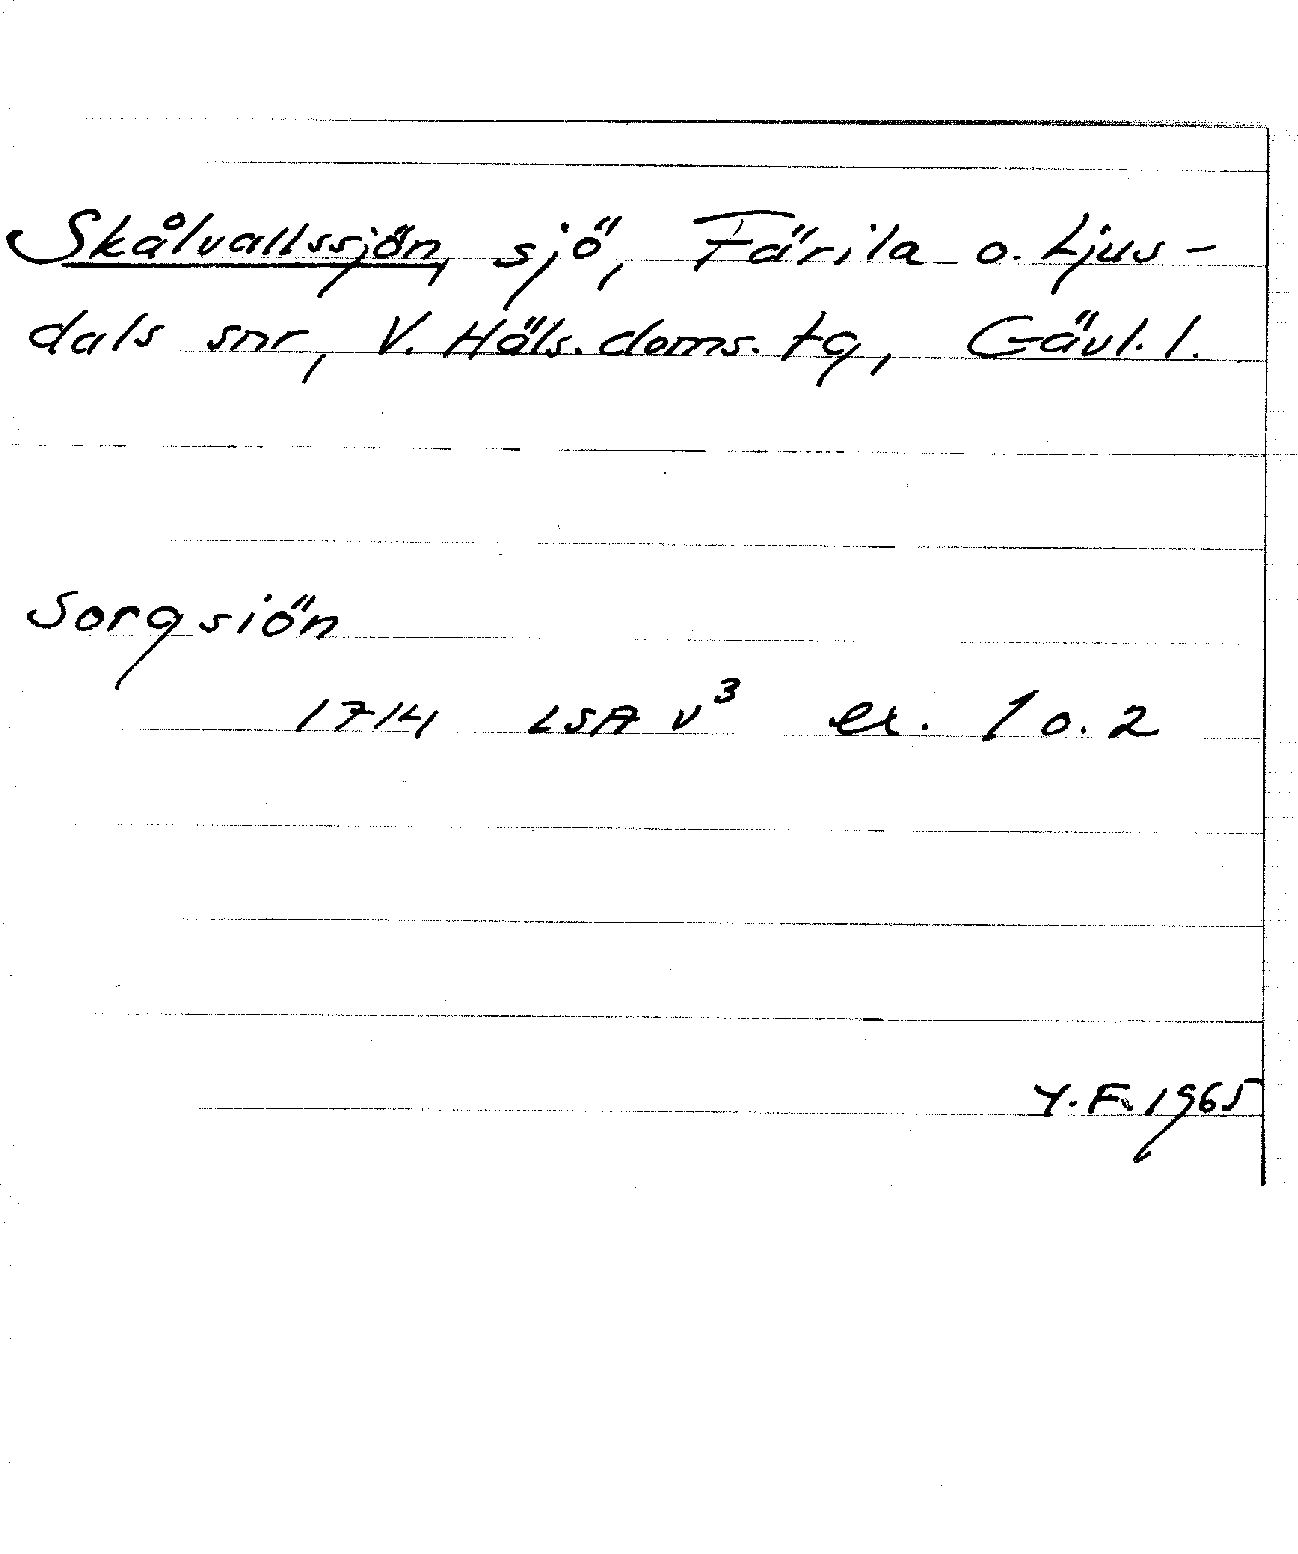 Skålvallssjön, sjö, Färila o. Ljus-
dals snr, V. Häls. doms. tg, Gävl. l.
Sorgsiön
1714 LSA V³ ex. 1 o. 2
Y.F. 1965